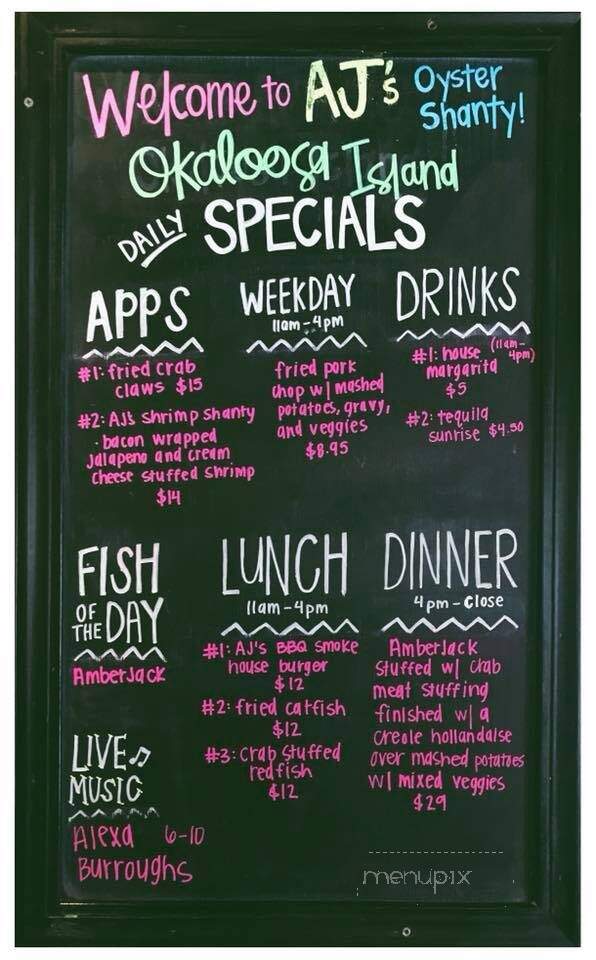 Welcome to AJ's Oyster Shanty!
Okaloosa Island
DAILY SPECIALS
APPS
#1: fried crab
claws $15
#2: AJ's shrimp shanty
- bacon wrapped
jalapeno and cream
cheese stuffed shrimp
$14
WEEKDAY
11am-4pm
fried pork
chop w/ mashed
potatoes, gravy,
and veggies
$8.95
DRINKS
#1: house (11am-4pm)
margarita
$5
#2: tequila
sunrise $4.50
FISH
OF THE DAY
AmberJack
LIVE♫
MUSIC
Alexa 6-10
Burroughs
LUNCH
11am-4pm
#1: AJ's BBQ smoke
house burger
$12
#2: fried catfish
$12
#3: crab stuffed
redfish
$12
DINNER
4pm-close
AmberJack
stuffed w/ crab
meat stuffing
finished w/ a
creole hollandaise
over mashed potatoes
w/ mixed veggies
$29
menupix